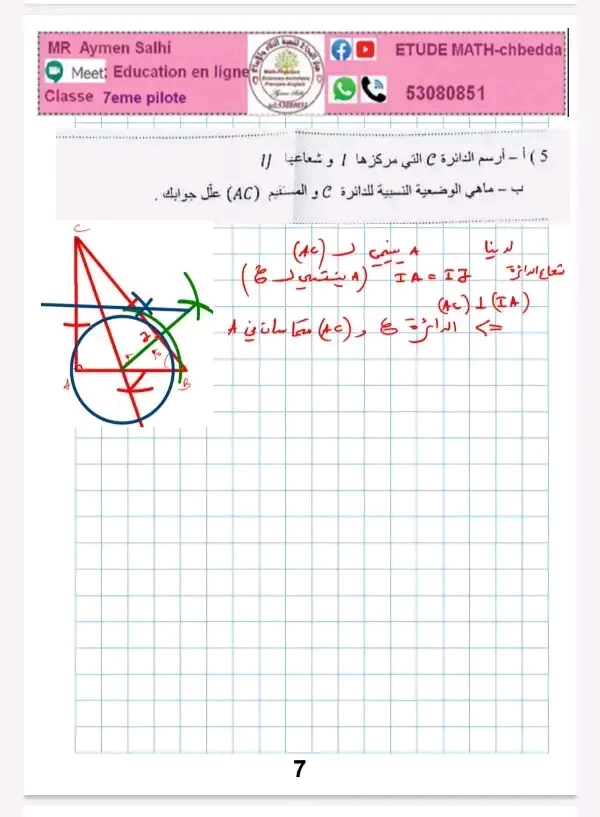 MR Aymen Salhi
Meet: Education en ligne
Classe 7eme pilote
ETUDE MATH-chbedda
53080851
5 ) أ - أرسم الدائرة C التي مركزها I و شعاعها IJ
ب - ماهي الوضعية النسبية للدائرة C و المستقيم (AC) علّل جوابك .
لدينا A ينتمي لـ (AC)
شعاع الدائرة IA = IJ (A ينتمي لـ C)
(AC) ⊥ (IA)
=> الدائرة C و (AC) متماسان في A
C
J
I
A
B
7